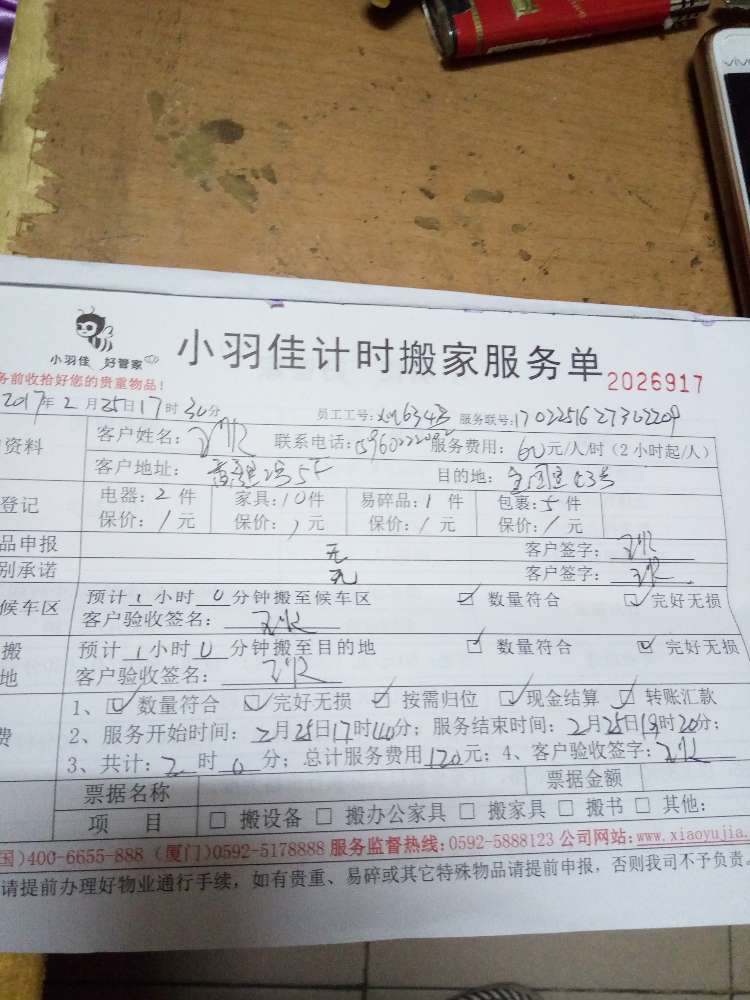 vivo
小羽佳 好管家
小羽佳计时搬家服务单 2026917
务前收拾好您的贵重物品!
2017年2月25日17时30分 员工工号: 服务联号:
资料 客户姓名: 联系电话: 服务费用:60元/人/时(2小时起/人)
客户地址: 5F 目的地:
登记 电器:2件 家具:10件 易碎品:1件 包裹:5件
保价:/元 保价:/元 保价:/元 保价:/元
品申报 无 客户签字:
别承诺 无 客户签字:
候车区 预计1小时0分钟搬至候车区 ☑ 数量符合 ☑完好无损
客户验收签名:
搬 预计1小时0分钟搬至目的地 ☑ 数量符合 ☑ 完好无损
地 客户验收签名:
1、☑数量符合 ☑完好无损 ☑ 按需归位 ☑现金结算 ☑ 转账汇款
费 2、服务开始时间:2月25日17时40分;服务结束时间:2月25日19时20分;
3、共计:2时0分;总计服务费用120元;4、客户验收签字:
票据名称 票据金额
项 目 □ 搬设备 □ 搬办公家具 □ 搬家具 □ 搬书 □ 其他:
国)400-6655-888 (厦门)0592-5178888 服务监督热线:0592-5888123 公司网站:www.xiaoyujia.
请提前办理好物业通行手续,如有贵重、易碎或其它特殊物品请提前申报,否则我司不予负责。